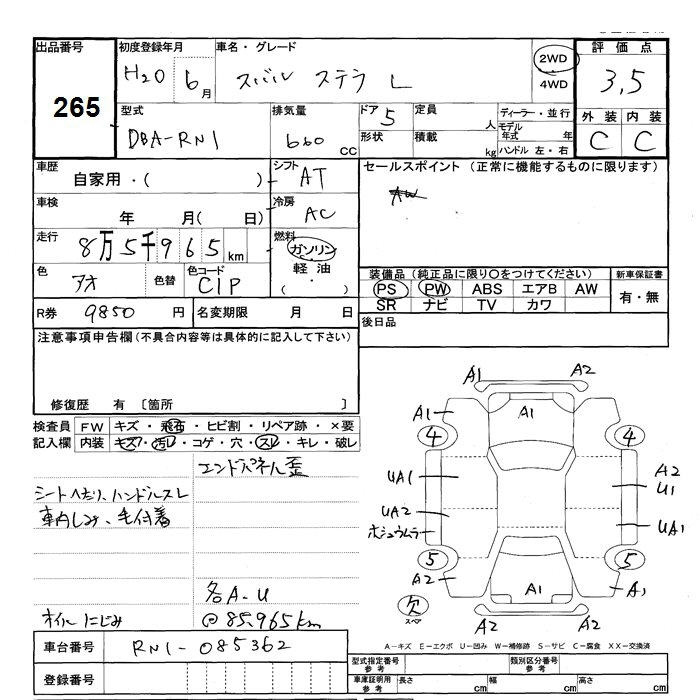 出品番号 初度登録年月 車名・グレード 評価点
265 H20 6月 スバル ステラ L 2WD 4WD 3,5
型式 排気量 ドア 5 定員 人 ディーラー・並行 外装 内装
DBA-RN1 660 CC 形状 積載 kg モデル年式 年 ハンドル 左・右 C C
車歴 自家用・( ) シフト AT セールスポイント (正常に機能するものに限ります)
車検 年 月( 日) 冷房 AC
AW
走行 8万5千965km 燃料 ガソリン 軽油 (・)
色 アオ 色替 色コード C1P
装備品 (純正品に限り○をつけてください) 新車保証書
PS PW ABS エアB AW 有・無
SR ナビ TV カワ
R券 9850円 名変期限 月 日 後日品
注意事項申告欄(不具合内容等は具体的に記入して下さい)
修復歴 有 〔箇所
検査員記入欄 FW キズ・飛石・ヒビ割・リペア跡・×要
内装 キズ・汚レ・コゲ・穴・スレ・キレ・破レ
エンドパネル歪
シートへたり、ハンドルスレ
車内しみ、毛付着
各A-U
オイルにじみ @85,965km
A1 A2
A1 A1
4 4
UA1 A2
U1
UA2 UA1
ホシュウムラ
5 5
A2 A1 A1
欠
スペア
A2 A2
車台番号 RN1-085362
登録番号
A-キズ E-エクボ U-凹み W-補修跡 S-サビ C-腐食 XX-交換済
型式指定番号 参考 類別区分番号 参考
車庫証明用 参考 長さ cm 幅 cm 高さ cm